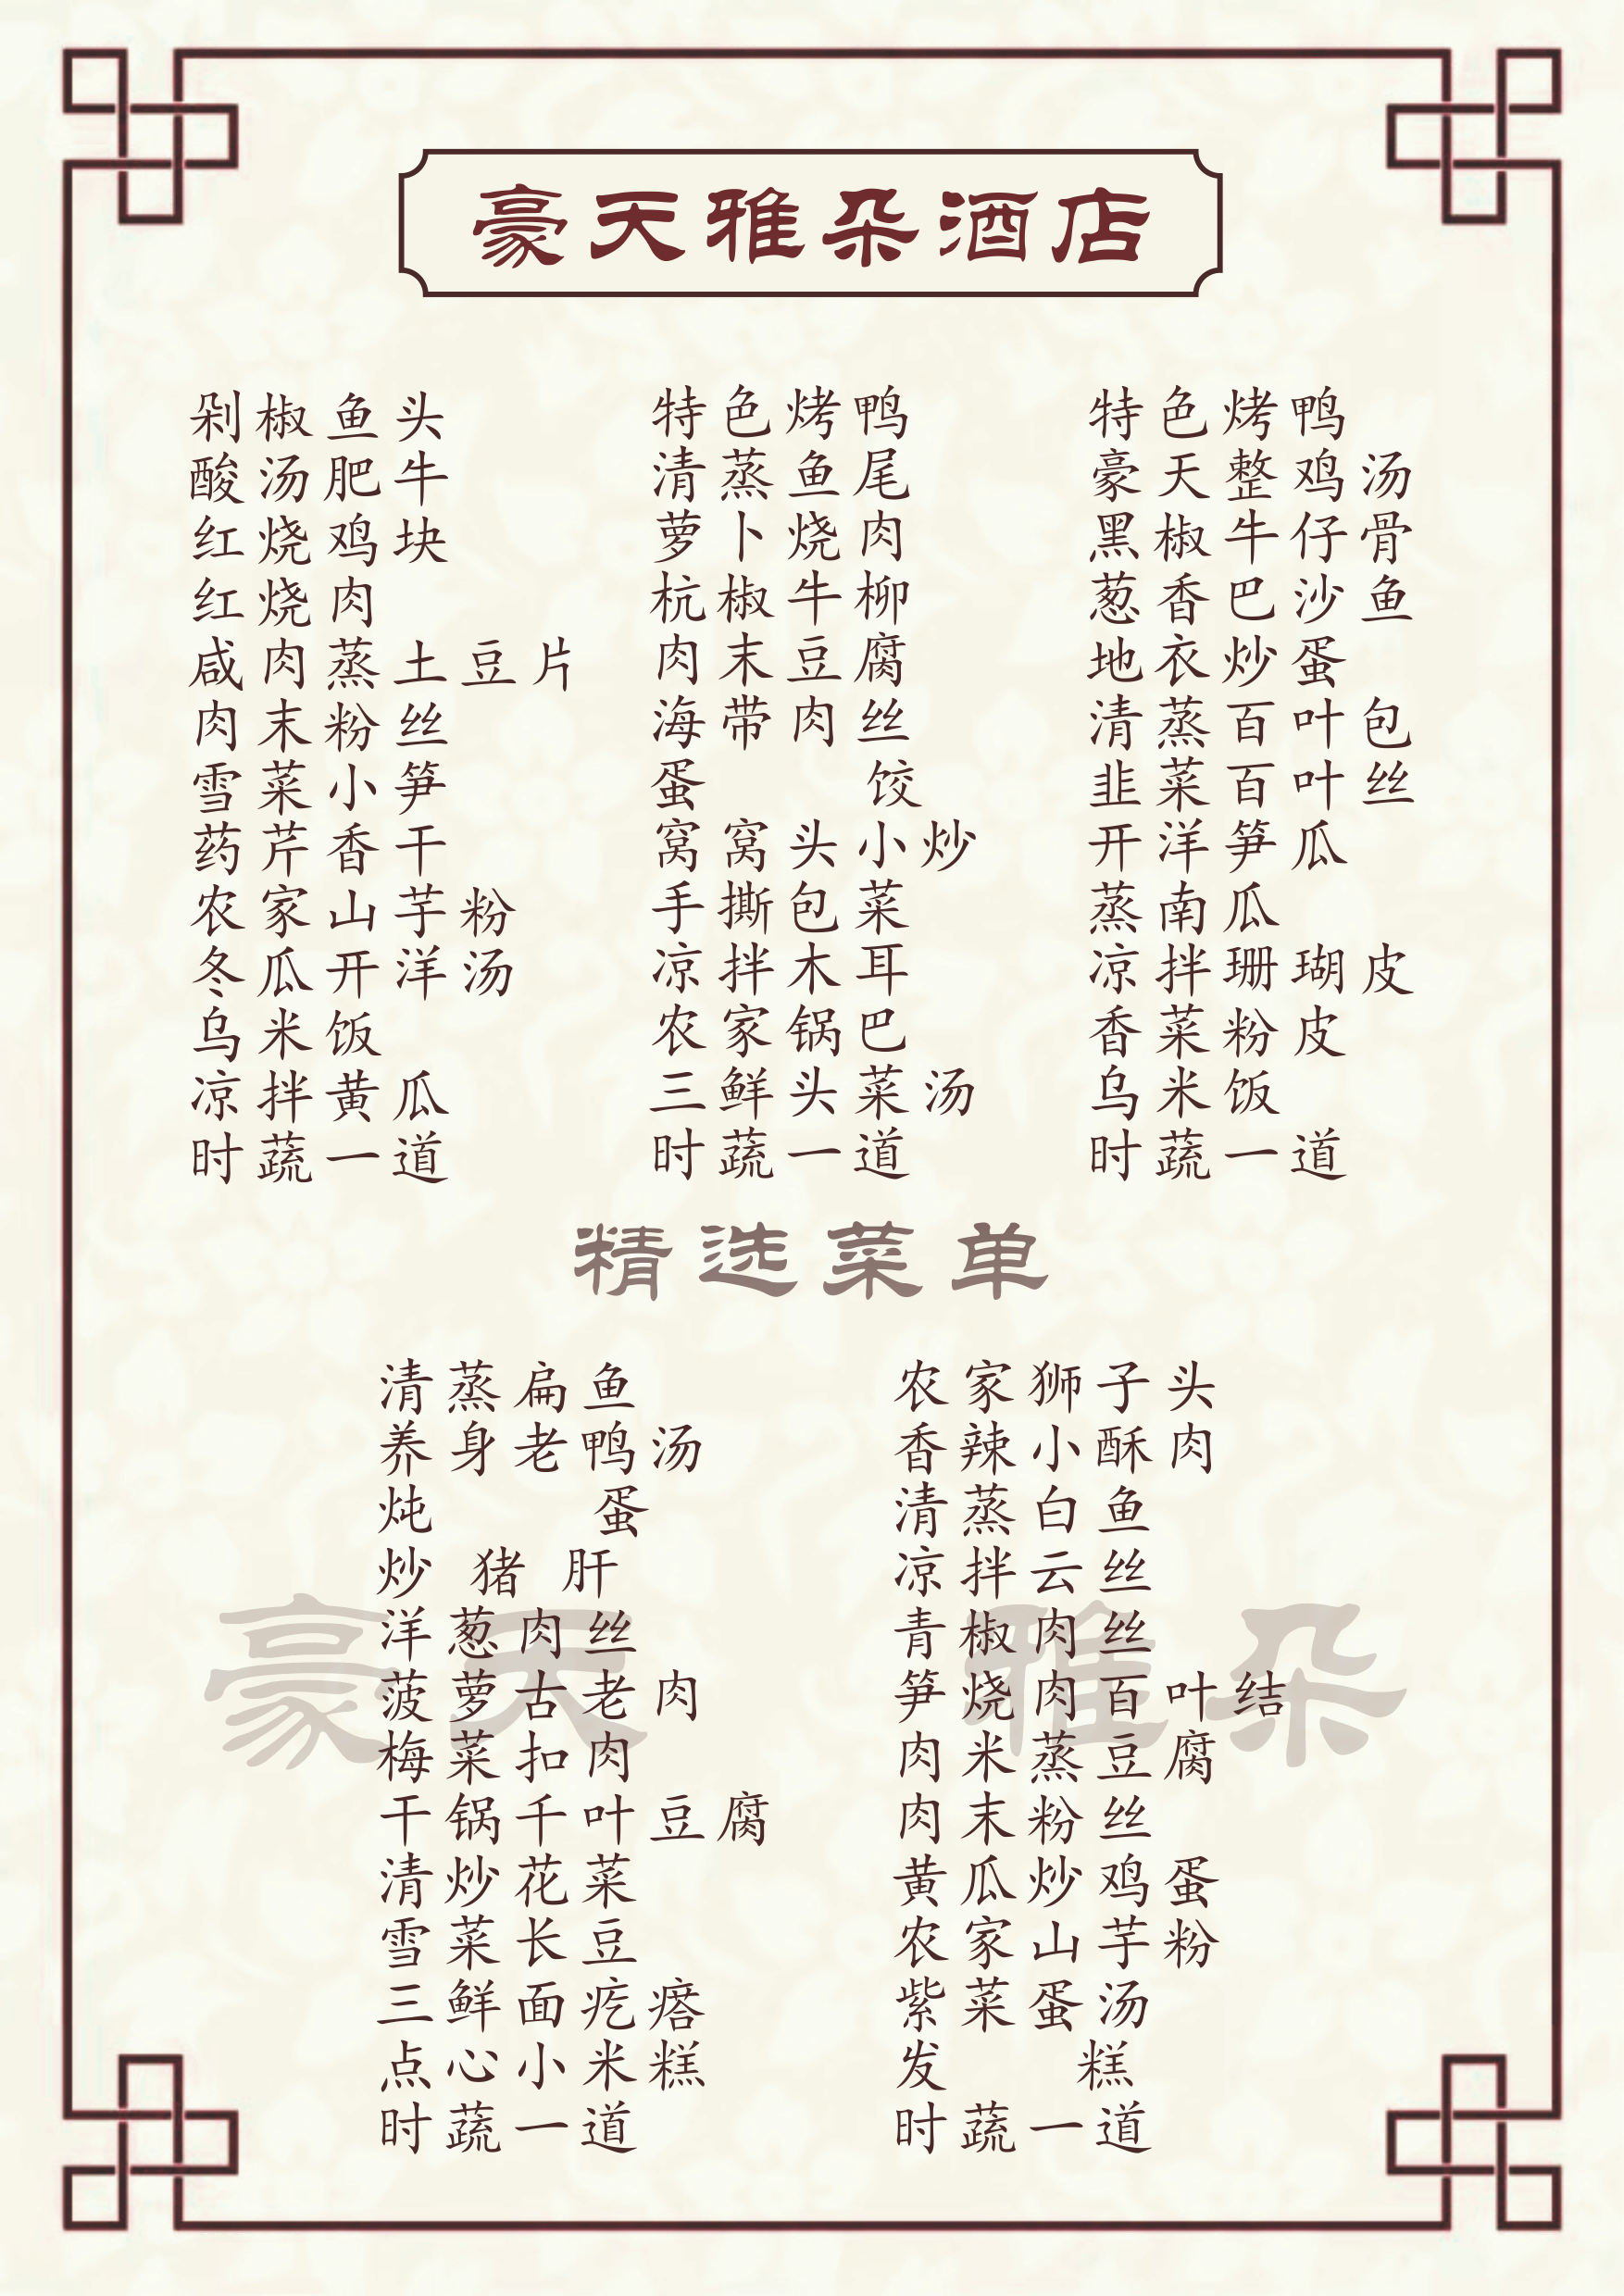 豪天雅朵酒店
剁椒鱼头
酸汤肥牛
红烧鸡块
红烧肉
咸肉蒸土豆片
肉末粉丝
雪菜小笋
药芹香干
农家山芋粉
冬瓜开洋汤
乌米饭
凉拌黄瓜
时蔬一道
特色烤鸭
清蒸鱼尾
萝卜烧肉
杭椒牛柳
肉末豆腐
海带肉丝
蛋 饺
窝窝头小炒
手撕包菜
凉拌木耳
农家锅巴
三鲜头菜汤
时蔬一道
特色烤鸭
豪天整鸡汤
黑椒牛仔骨
葱香巴沙鱼
地衣炒蛋
清蒸百叶包
韭菜百叶丝
开洋笋瓜
蒸南瓜
凉拌珊瑚皮
香菜粉皮
乌米饭
时蔬一道
精选菜单
清蒸扁鱼
养身老鸭汤
炖 蛋
炒 猪 肝
洋葱肉丝
菠萝古老肉
梅菜扣肉
干锅千叶豆腐
清炒花菜
雪菜长豆
三鲜面疙瘩
点心小米糕
时蔬一道
农家狮子头
香辣小酥肉
清蒸白鱼
凉拌云丝
青椒肉丝
笋烧肉百叶结
肉米蒸豆腐
肉末粉丝
黄瓜炒鸡蛋
农家山芋粉
紫菜蛋汤
发 糕
时蔬一道
豪天 雅朵